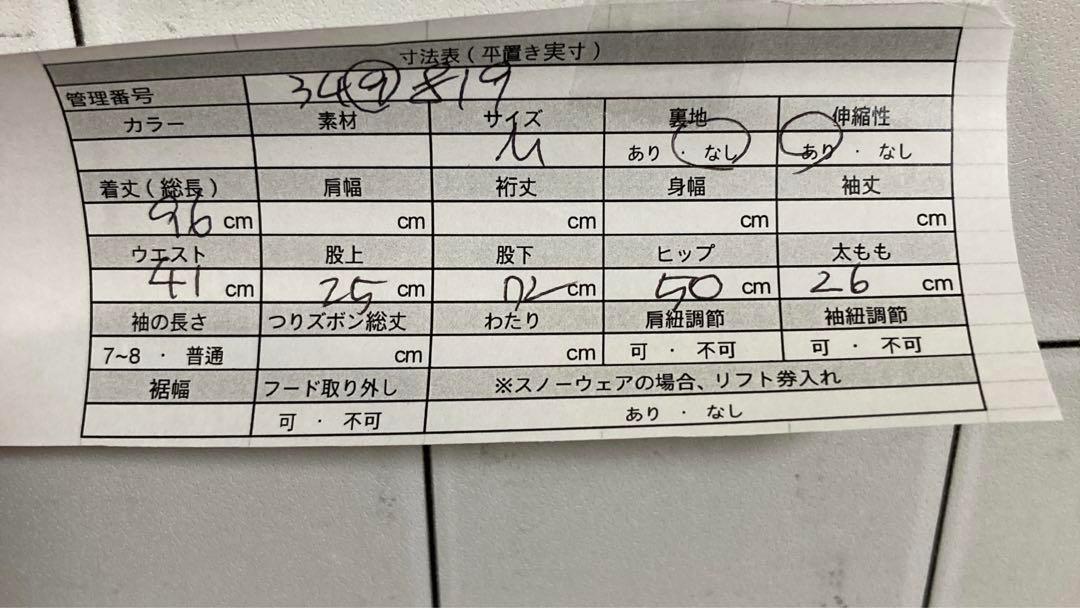 寸法表(平置き実寸)
管理番号 349819
カラー 素材 サイズ 裏地 伸縮性
M あり ・ なし あり ・ なし
着丈(総長) 肩幅 裄丈 身幅 袖丈
96 cm cm cm cm cm
ウエスト 股上 股下 ヒップ 太もも
41 cm 25 cm 72 cm 50 cm 26 cm
袖の長さ つりズボン総丈 わたり 肩紐調節 袖紐調節
7~8 ・ 普通 cm cm 可 ・ 不可 可 ・ 不可
裾幅 フード取り外し ※スノーウェアの場合、リフト券入れ
可 ・ 不可 あり ・ なし